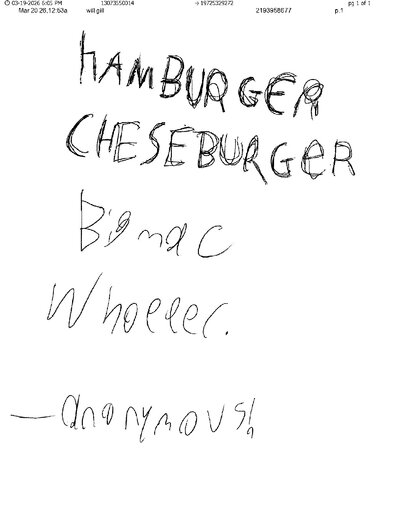 03-19-2026 6:05 PM 13073550314 → 19725329272 pg 1 of 1
Mar 20 26, 12:53a will gill 2193958677 p.1
HAMBURGER
CHESEBURGER
Big mac
Whoeeer.
—anonymous!